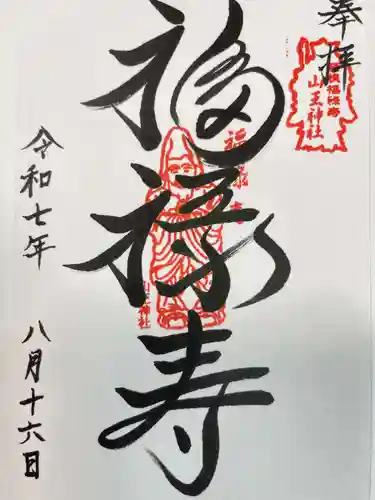 奉拝
山王神社
福禄寿
令和七年 八月十六日